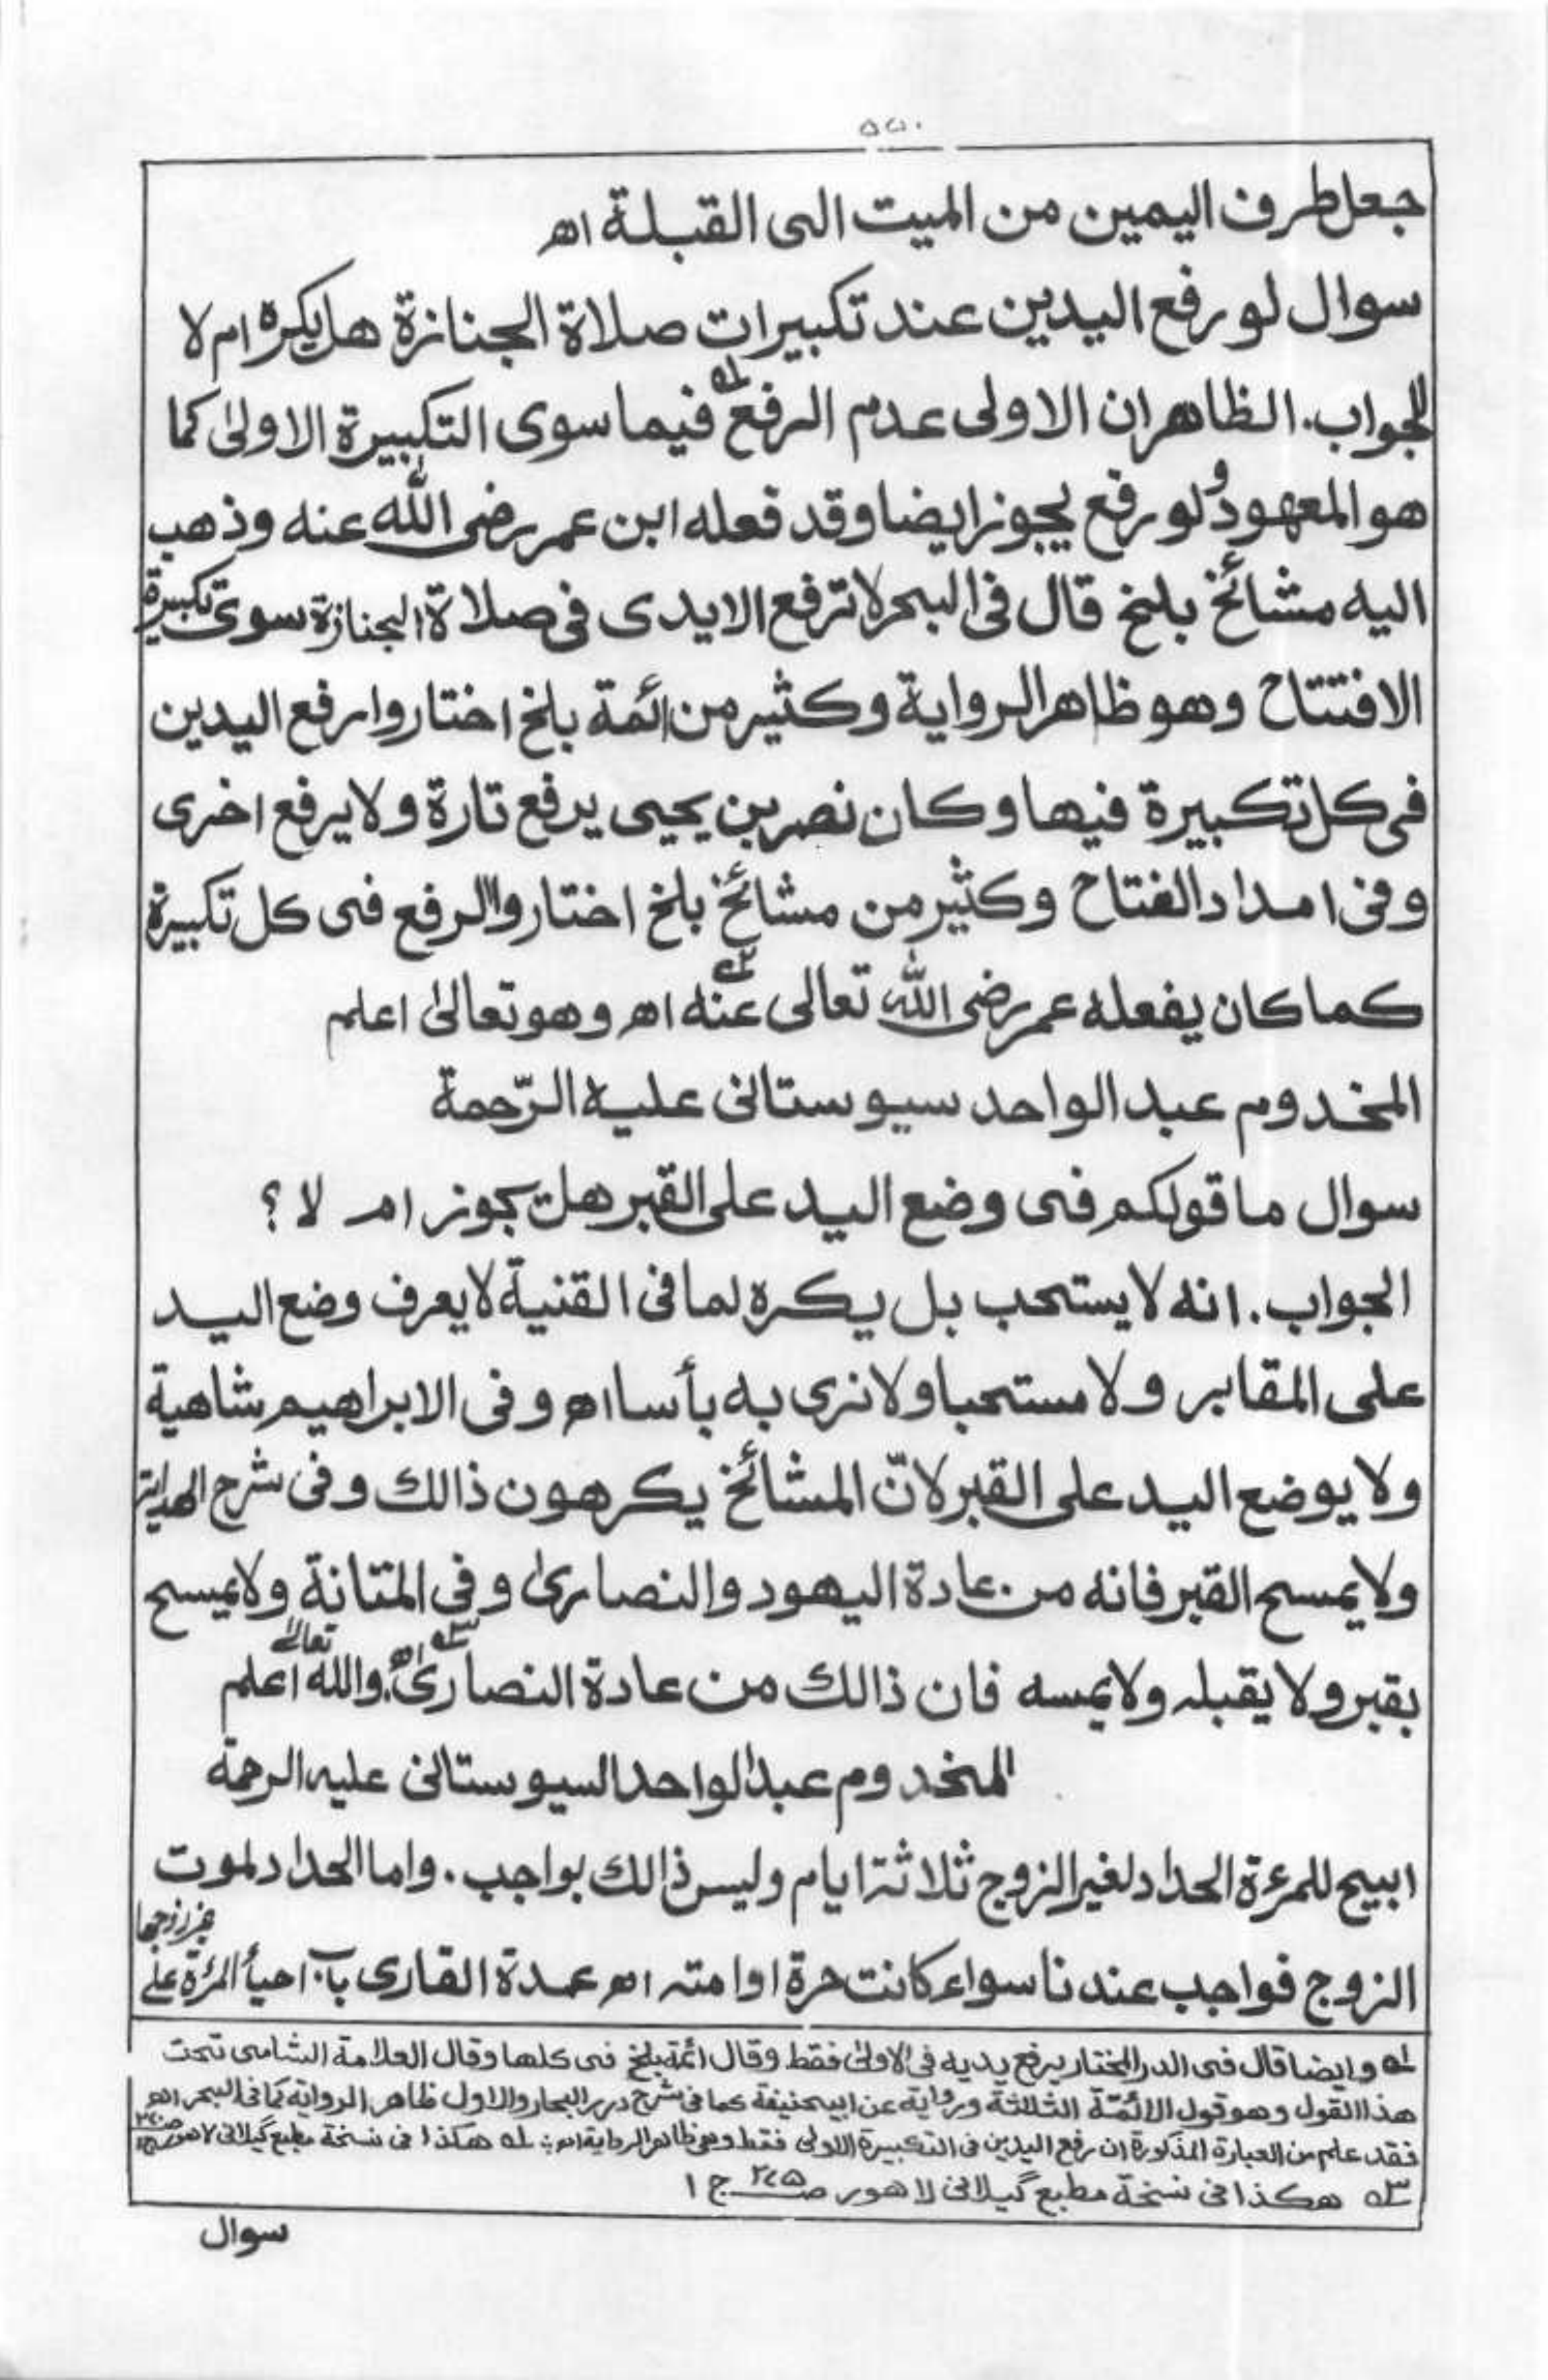 جعل طرف اليمين من الميت الى القبلة اھ
سوال لو رفع اليدين عند تكبيرات صلاة الجنازة هل يكره ام لا
الجواب. الظاهر ان الاولى عدم الرفع ١؎ فيما سوى التكبيرة الاولىٰ كما
هو المعهود ولو رفع يجوز ايضا وقد فعله ابن عمر رضى الله عنه وذهب
اليه مشائخ بلخ قال فى البحر لا ترفع الايدى فى صلاة الجنازة سوى تكبيرة
الافتتاح وهو ظاهر الرواية وكثير من ائمة بلخ اختاروا رفع اليدين
فى كل تكبيرة فيها وكان نصر بن يحيى يرفع تارة ولا يرفع اخرى
وفى امداد الفتاح وكثير من مشائخ بلخ اختاروا الرفع فى كل تكبيرة
كما كان يفعله عمر رضى الله تعالى عنه ٢؎ اھ وهو تعالىٰ اعلم
المخدوم عبد الواحد سيوستانى عليه الرّحمة
سوال ما قولكم فى وضع اليد على القبر هل يجوز ام لا ؟
الجواب. انه لا يستحب بل يكره لما فى القنية لا يعرف وضع اليد
على المقابر ولا مستحبا ولا نرى به بأسا اھ وفى الابراهيم شاهية
ولا يوضع اليد على القبر لانّ المشائخ يكرهون ذالك وفى شرح الهداية
ولا يمسح القبر فانه من عادة اليهود والنصارىٰ وفى المتانة ولا يمسح
بقبر ولا يقبله ولا يمسه فان ذالك من عادة النصارىٰ اھ ٣؎ والله تعالىٰ اعلم
المخدوم عبد الواحد السيوستانى عليه الرحمة
ابيح للمرءة الحداد لغير الزوج ثلاثة ايام وليس ذالك بواجب. واما الحداد لموت
الزوج فواجب عندنا سواء كانت حرة او امته اھ عمدة القارى باب احياأ المرءة على غير زوجها
١؎ وايضا قال فى الدر المختار يرفع يديه فى الاولىٰ فقط وقال ائمة بلخ فى كلها وقال العلامة الشامى تحت
هذا القول وهو قول الائمّة الثلاثة ورواية عن ابيحنيفة كما فى شرح درر البحار والاول ظاهر الرواية كما فى البحر اھ
فقد علم من العبارة المذكورة ان رفع اليدين فى التكبيرة الاولى فقط وهى ظاهر الرواية اھ ٢؎ هكذا فى نسخة مطبع گيلانى لاهور
٣؎ هكذا فى نسخة مطبع گيلانى لاهور ص ٢٧٥ ج ١
سوال